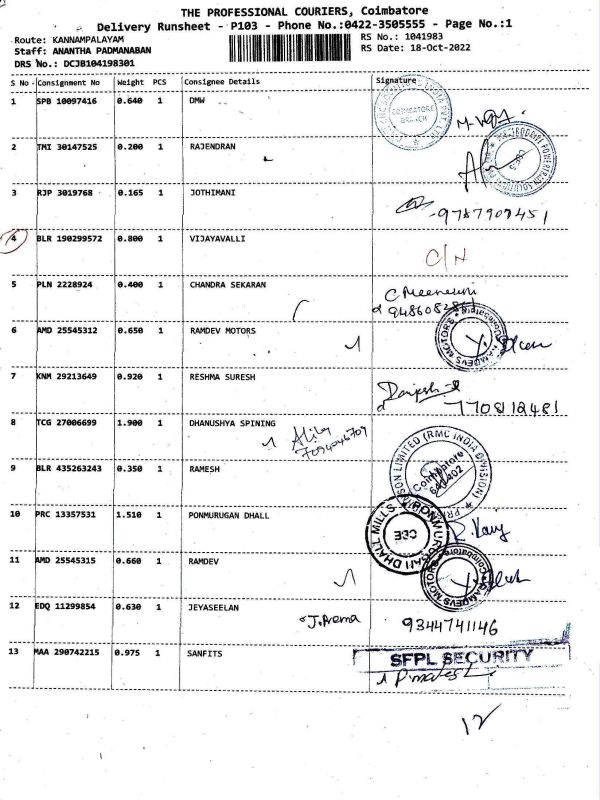 THE PROFESSIONAL COURIERS, Coimbatore
Delivery Runsheet - P103 - Phone No.:0422-3505555 - Page No.:1
Route: KANNAMPALAYAM
RS No.: 1041983
Staff: ANANTHA PADMANABAN
RS Date: 18-Oct-2022
DRS No.: DCJB104198301
S No Consignment No Weight PCS Consignee Details Signature
1 SPB 10097416 0.640 1 DMW
COIMBATORE
BRANCH
2 TMI 30147525 0.200 1 RAJENDRAN
3 RJP 3019768 0.165 1 JOTHIMANI
-9787909451
4 BLR 190299572 0.800 1 VIJAYAVALLI
C/N
5 PLN 2228924 0.400 1 CHANDRA SEKARAN
6 AMD 25545312 0.650 1 RAMDEV MOTORS
RAMDEVS MOTORS * Coimbatore *
7 KNM 29213649 0.920 1 RESHMA SURESH
7708112481
8 TCG 27006699 1.900 1 DHANUSHYA SPINING
7094046709
9 BLR 435263243 0.350 1 RAMESH
SON LIMITED (RMC INDIA DIVISION)
Coimbatore
641 402
10 PRC 13357531 1.510 1 PONMURUGAN DHALL
PONMURUGAN DHALL MILLS
CBE
11 AMD 25545315 0.660 1 RAMDEV
RAMDEVS MOTORS * Coimbatore *
12 EDQ 11299854 0.630 1 JEYASEELAN
J. Prema 9344741146
13 MAA 290742215 0.975 1 SANFITS
SFPL SECURITY
12